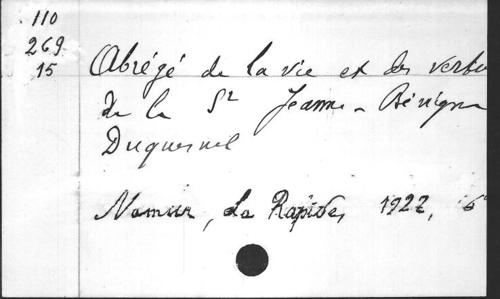 110
269
15
Abrégé de la vie et des vertu
de la Sr Jeanne-Bénigne
Duquesnel
Namur, La Rapide, 1927,